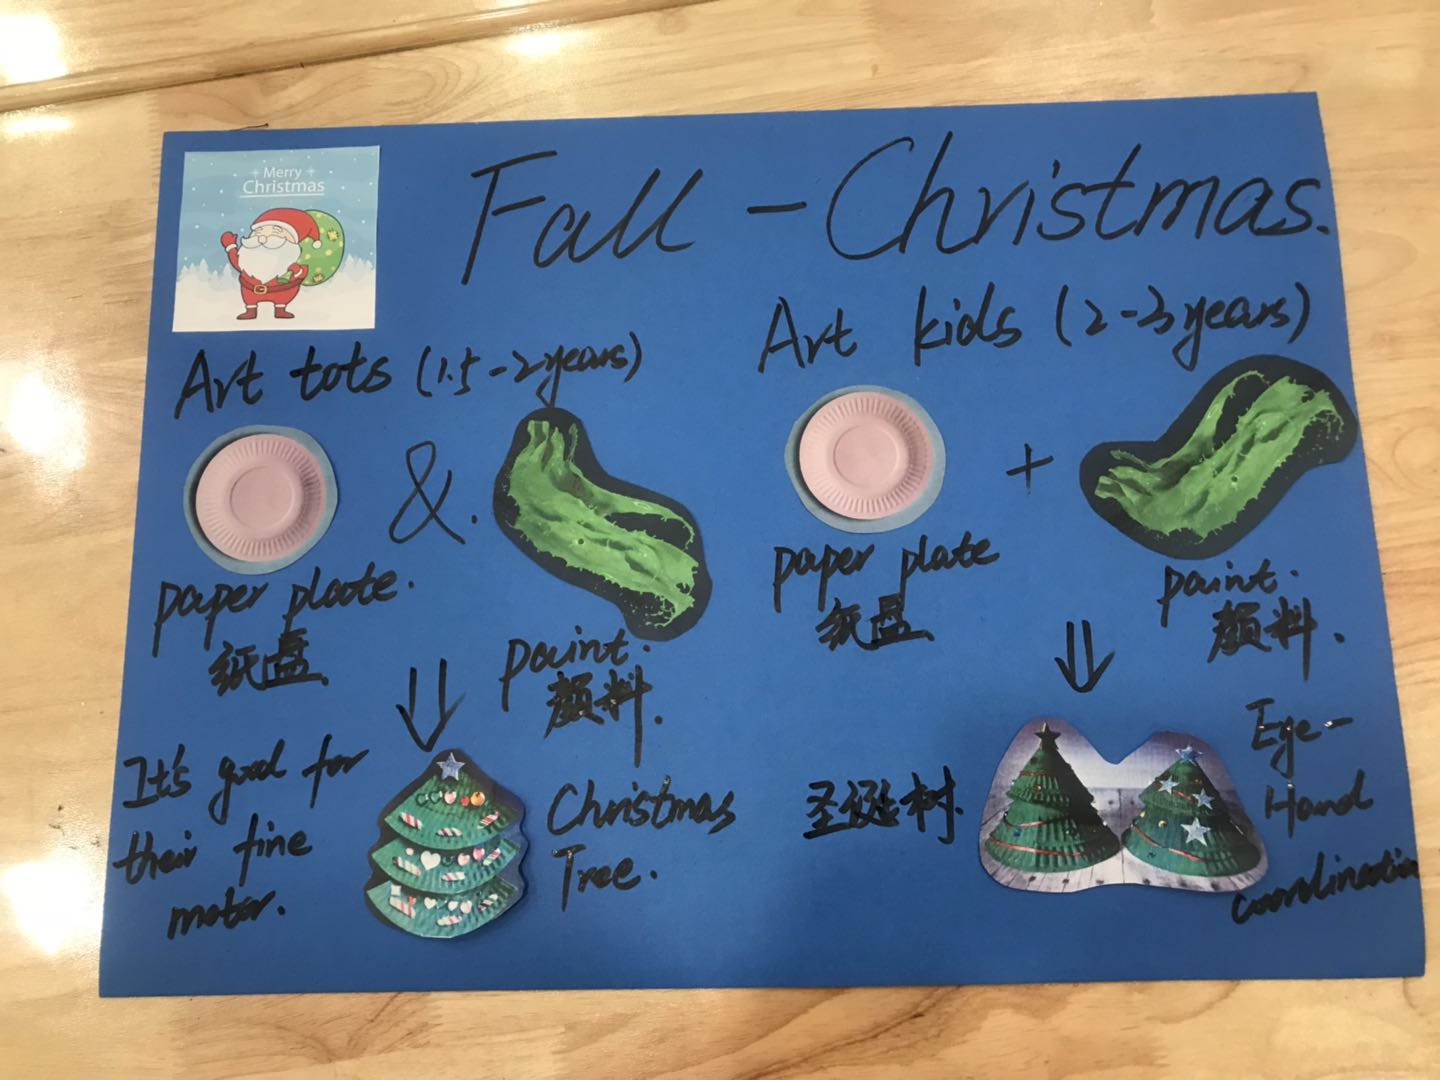 Merry
Christmas
Fall - Christmas.
Art tots (1.5-2years)
&.
paper plate.
纸盘
paint.
颜料.
It's good for
their fine
motor.
Christmas
Tree.
Art kids (2-3years)
+
paper plate
纸盘
paint.
颜料.
圣诞树.
Eye-
Hand
coordination